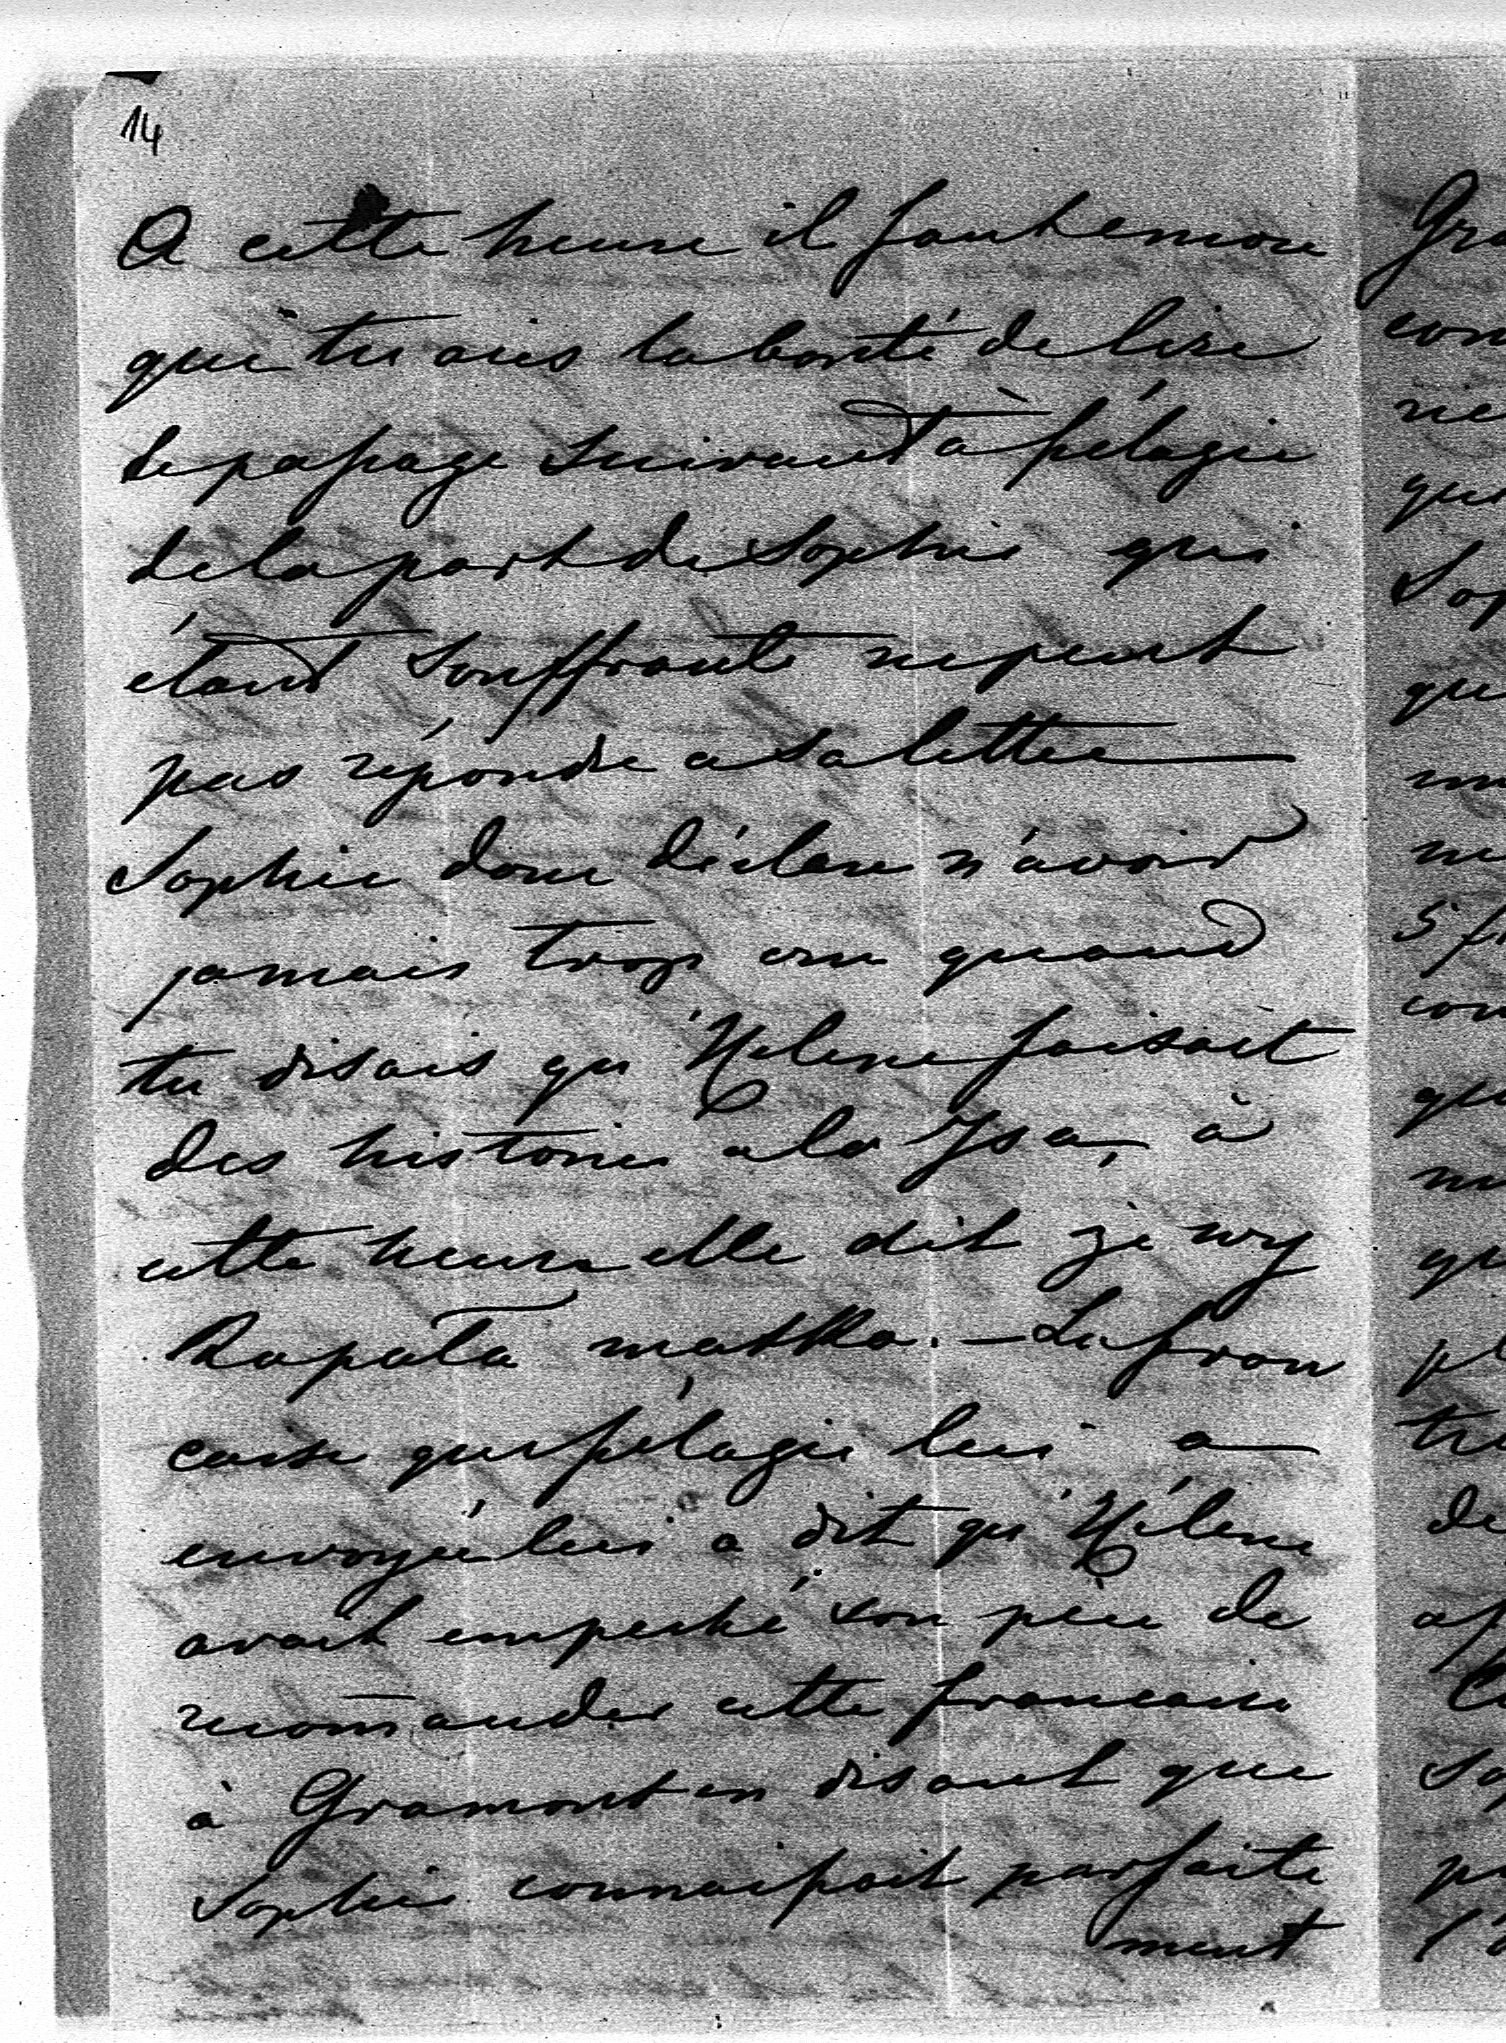 14
A cette heure il faut encore
que tu aies la bonté de lire
le passage suivant à Pélagie
de la part de Sophie qui
étant souffrante ne peut
pas répondre a sa lettre —
Sophie donc déclare n'avoir
jamais trop cru quand
tu disais qu'Helene faisait
des histoires a la Isa, à
cette heure elle dit że wy
kapała matka. — La fran
caise que Pélagie lui a
envoyée lui a dit qu'Hélene
avait empeché son père de
recomander cette francaise
à Gramont en disant que
Sophie connaissait parfaite
ment